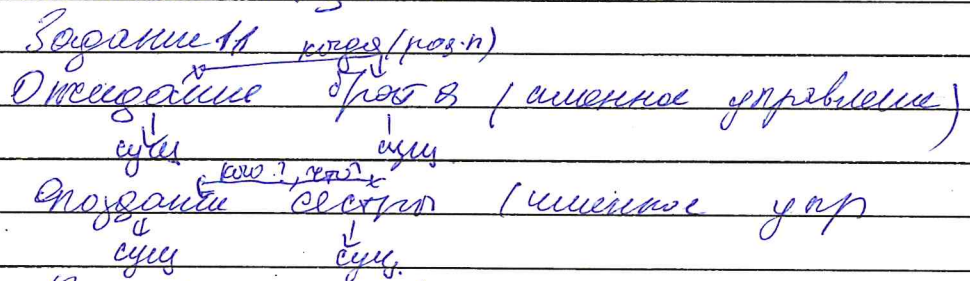 Задание 11
кого (род.п)
Ожидание брата (именное управление)
сущ сущ
кого?, что?
Опоздание сестры (именное упр
сущ сущ.